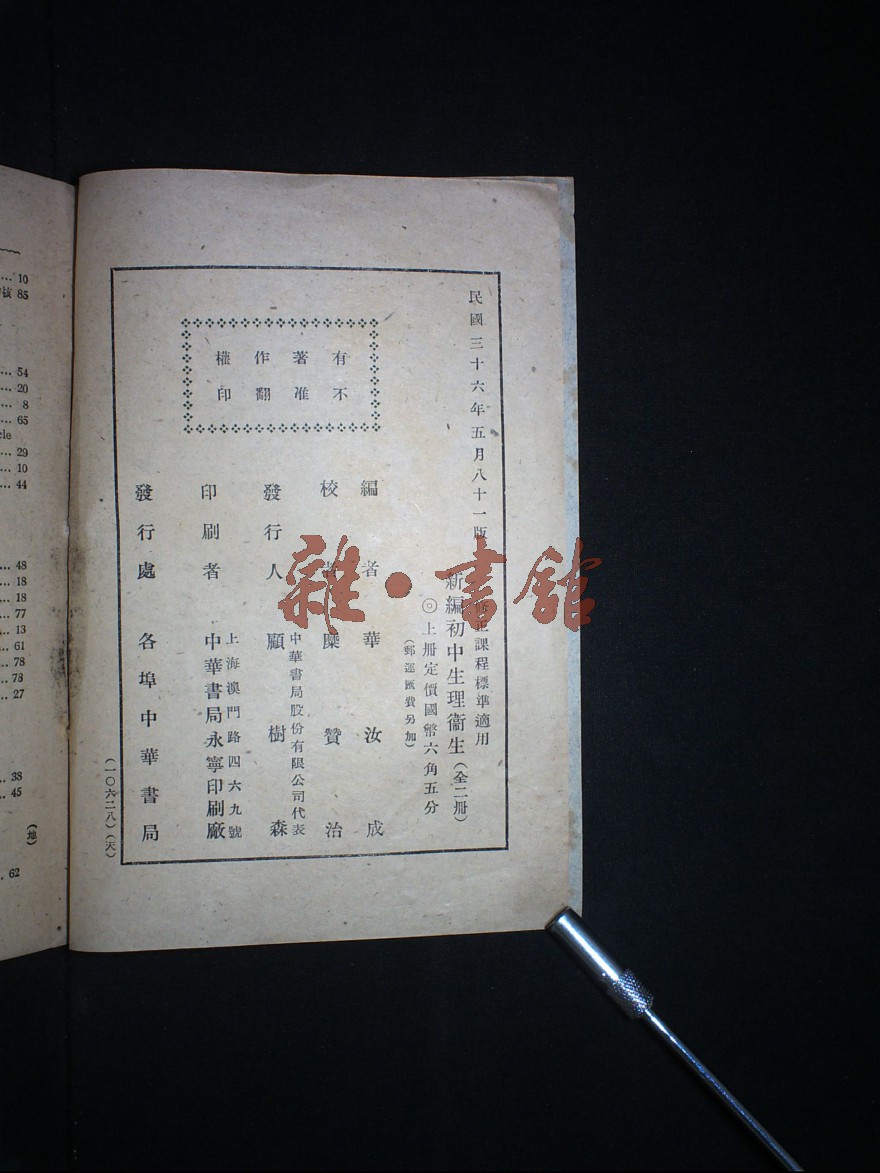 民國三十六年五月八十一版
修正課程標準適用
新編初中生理衞生(全二冊)
◎上冊定價國幣六角五分
(郵運匯費另加)
有著作權
不准翻印
編者 華汝成
校者 糜贊治
發行人 中華書局股份有限公司代表 顧樹森
印刷者 上海澳門路四六九號 中華書局永寧印刷廠
發行處 各埠中華書局
(一〇六二八)(天)
雜·書館
10
核 85
54
20
8
65
cle
29
10
44
48
18
18
77
13
61
78
78
27
38
45
(地)
62